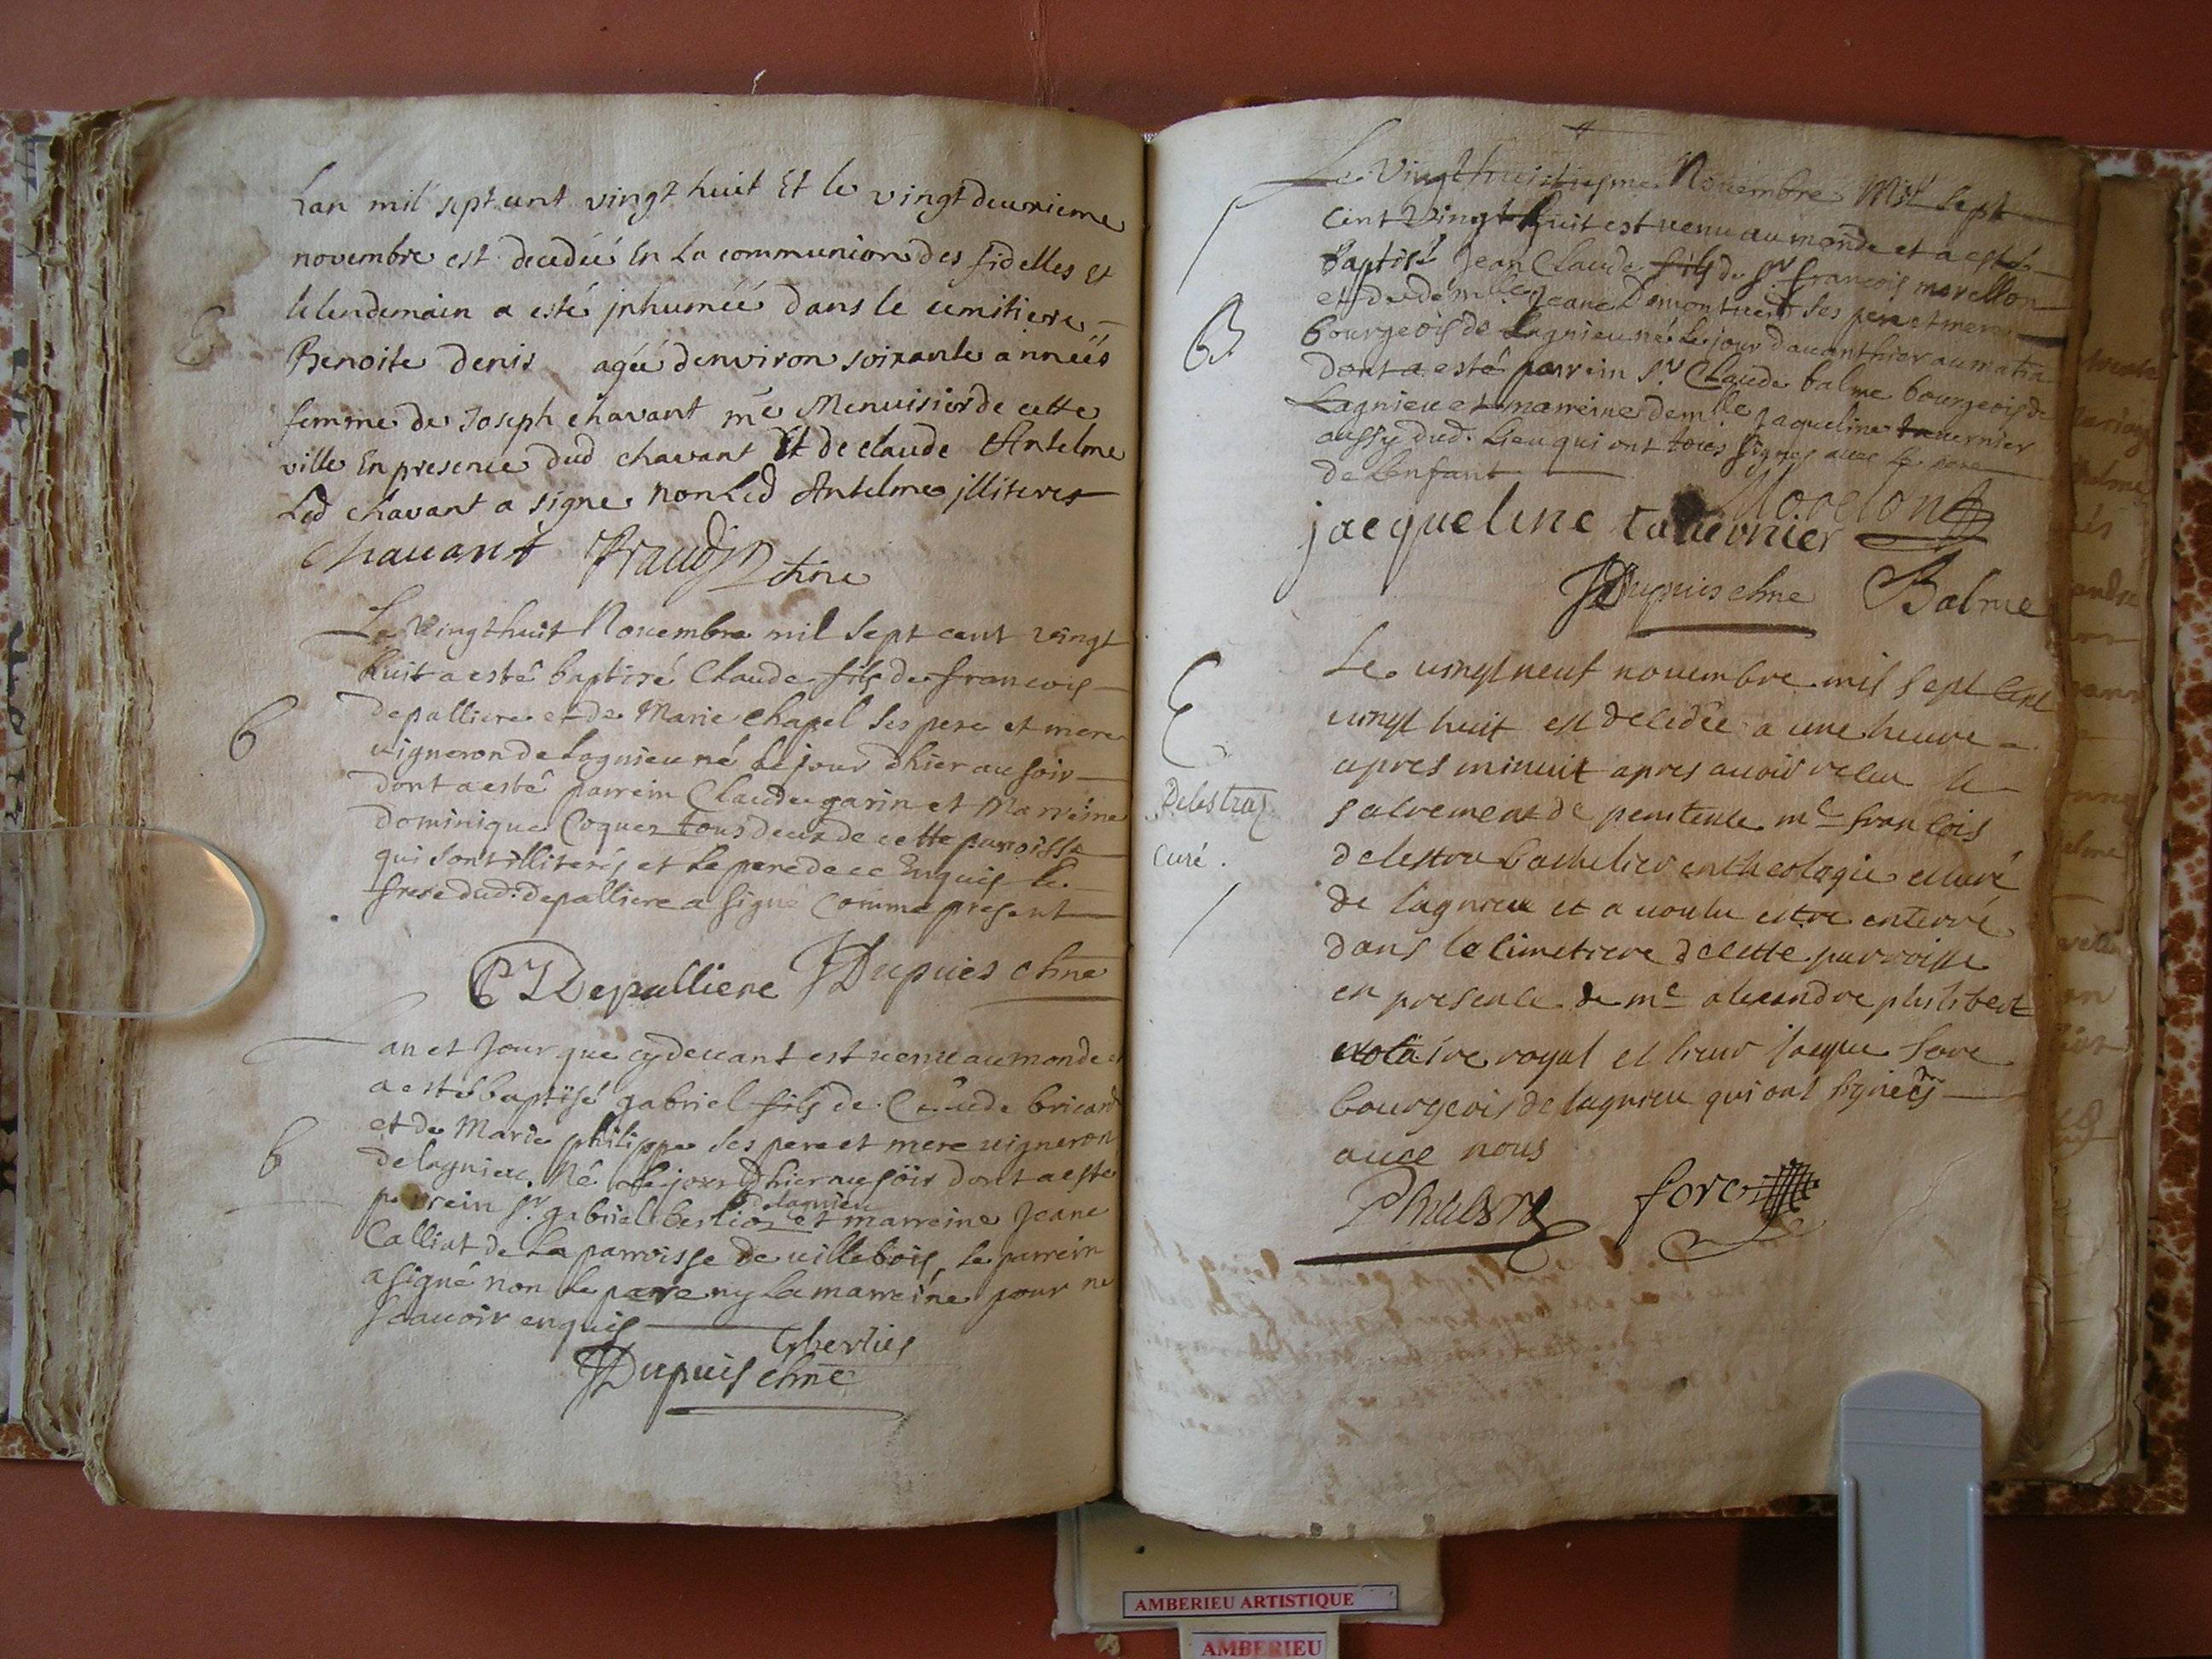 Lan mil sept cent vingt huit Et le vingt deuxieme
novembre est decedéé En La communion des fidelles Et
le lendemain a esté jnhuméé dans le cemitiere
Benoite denis agéé denviron soixante annéés
femme de Joseph chavant me Menuisier de cette
ville En presence dud chavant Et de claude Antelme
Led chavant a signe non Led Antelme jlliteres
Chauant
Le Vingthuit Nouembre mil sept cent vingt
huit a esté baptisé Claude fils de francois
depalliere et de Marie chapel ses pere et mere
b
uigneron de Lagnieu né le jour d'hier au soir
dont a esté parrein Claude garin et Marreine
dominique Coquer tous deux de cette paroisse
qui sont illiterés et le pere de ce Enquis le
frere dud: depalliere a signé comme present
Depalliere JDupuis
an et Jour que cydeuant est uenu au monde et
a esté baptisé gabriel fils de Claude bricand
et de Marie philippe ses pere et mere uigneron
b
de lagnieu. Né le jour d'hier au soir dont a este
delagnieu
parrein sr. gabriel berlioz et marreine Jeane
Calliat de La parroisse de uillebois, le parrein
a signé non le pere ny la marreine pour ne
scauoir enquis
Gberlies
JDupuis
Le Vingthuitiesme Nouembre Mil Sept
Cent Vingt huit est uenu au monde et a esté
Baptisé Jean Claude fils de sr. francois morellon
et de demlle Jeane ses pere et mere
B
bourgeois de Lagnieu né le jour dauanthier au matin
dont a esté parrein sr. Claude balme bourgeois de
Lagnieu et marreine demlle jaqueline tauernier
aussy dud. Lieu qui ont tous signés auec le pere
de Lenfant
Morelon
jacqueline tauernier
JDupuis Balme
Le uingt neuf nouembre mil sept cent
uingt huit est decedée a une heure
apres minuit apres auoir receu le
Delestraz
sacrement de penitence me francois
curé.
delestra bachelier en theologie et curé
de lagnieu et a uoulu estre enterré
dans le cimetiere de cette parroisse
en presence de me alexandre philibert
notaire royal et sieur jacque fore
bourgeois de lagnieu qui ont signés
auec nous
fore
AMBERIEU ARTISTIQUE
AMBERIEU